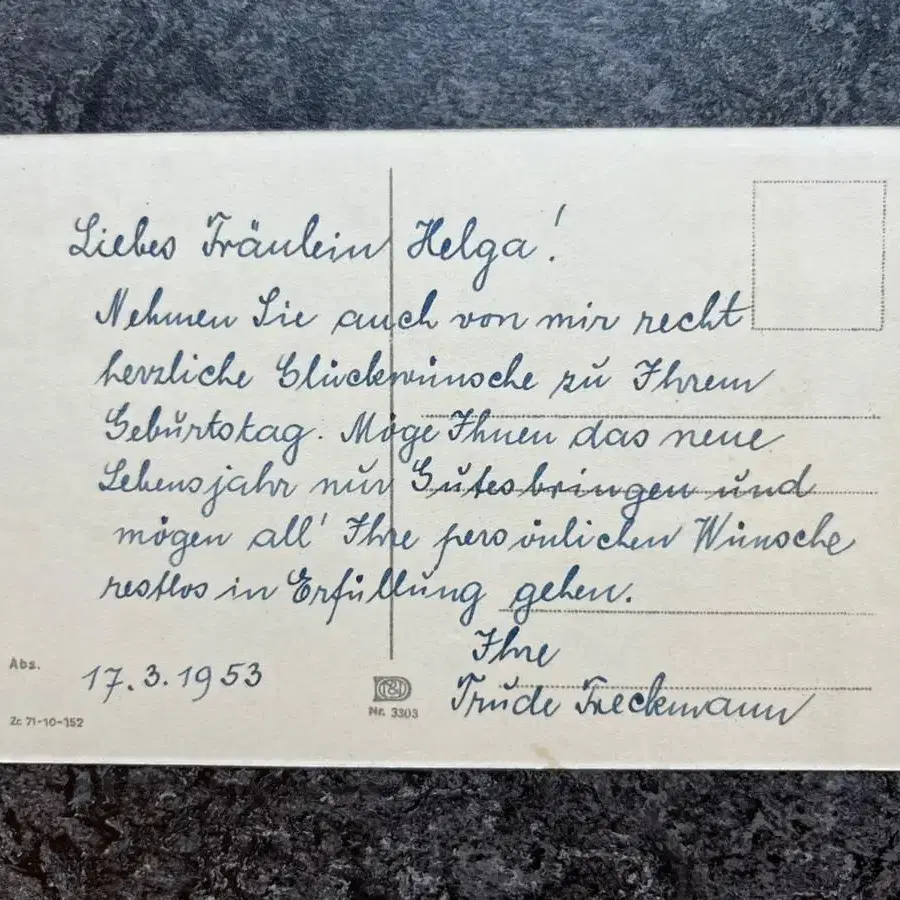 Liebes Fräulein Helga!
Nehmen Sie auch von mir recht
herzliche Glückwünsche zu Ihrem
Geburtstag. Möge Ihnen das neue
Lebensjahr nur Gutes bringen und
mögen all' Ihre persönlichen Wünsche
restlos in Erfüllung gehen.
Ihre
Trude Freckmann
Abs.
17.3.1953
Nr. 3303
Zc 71-10-152